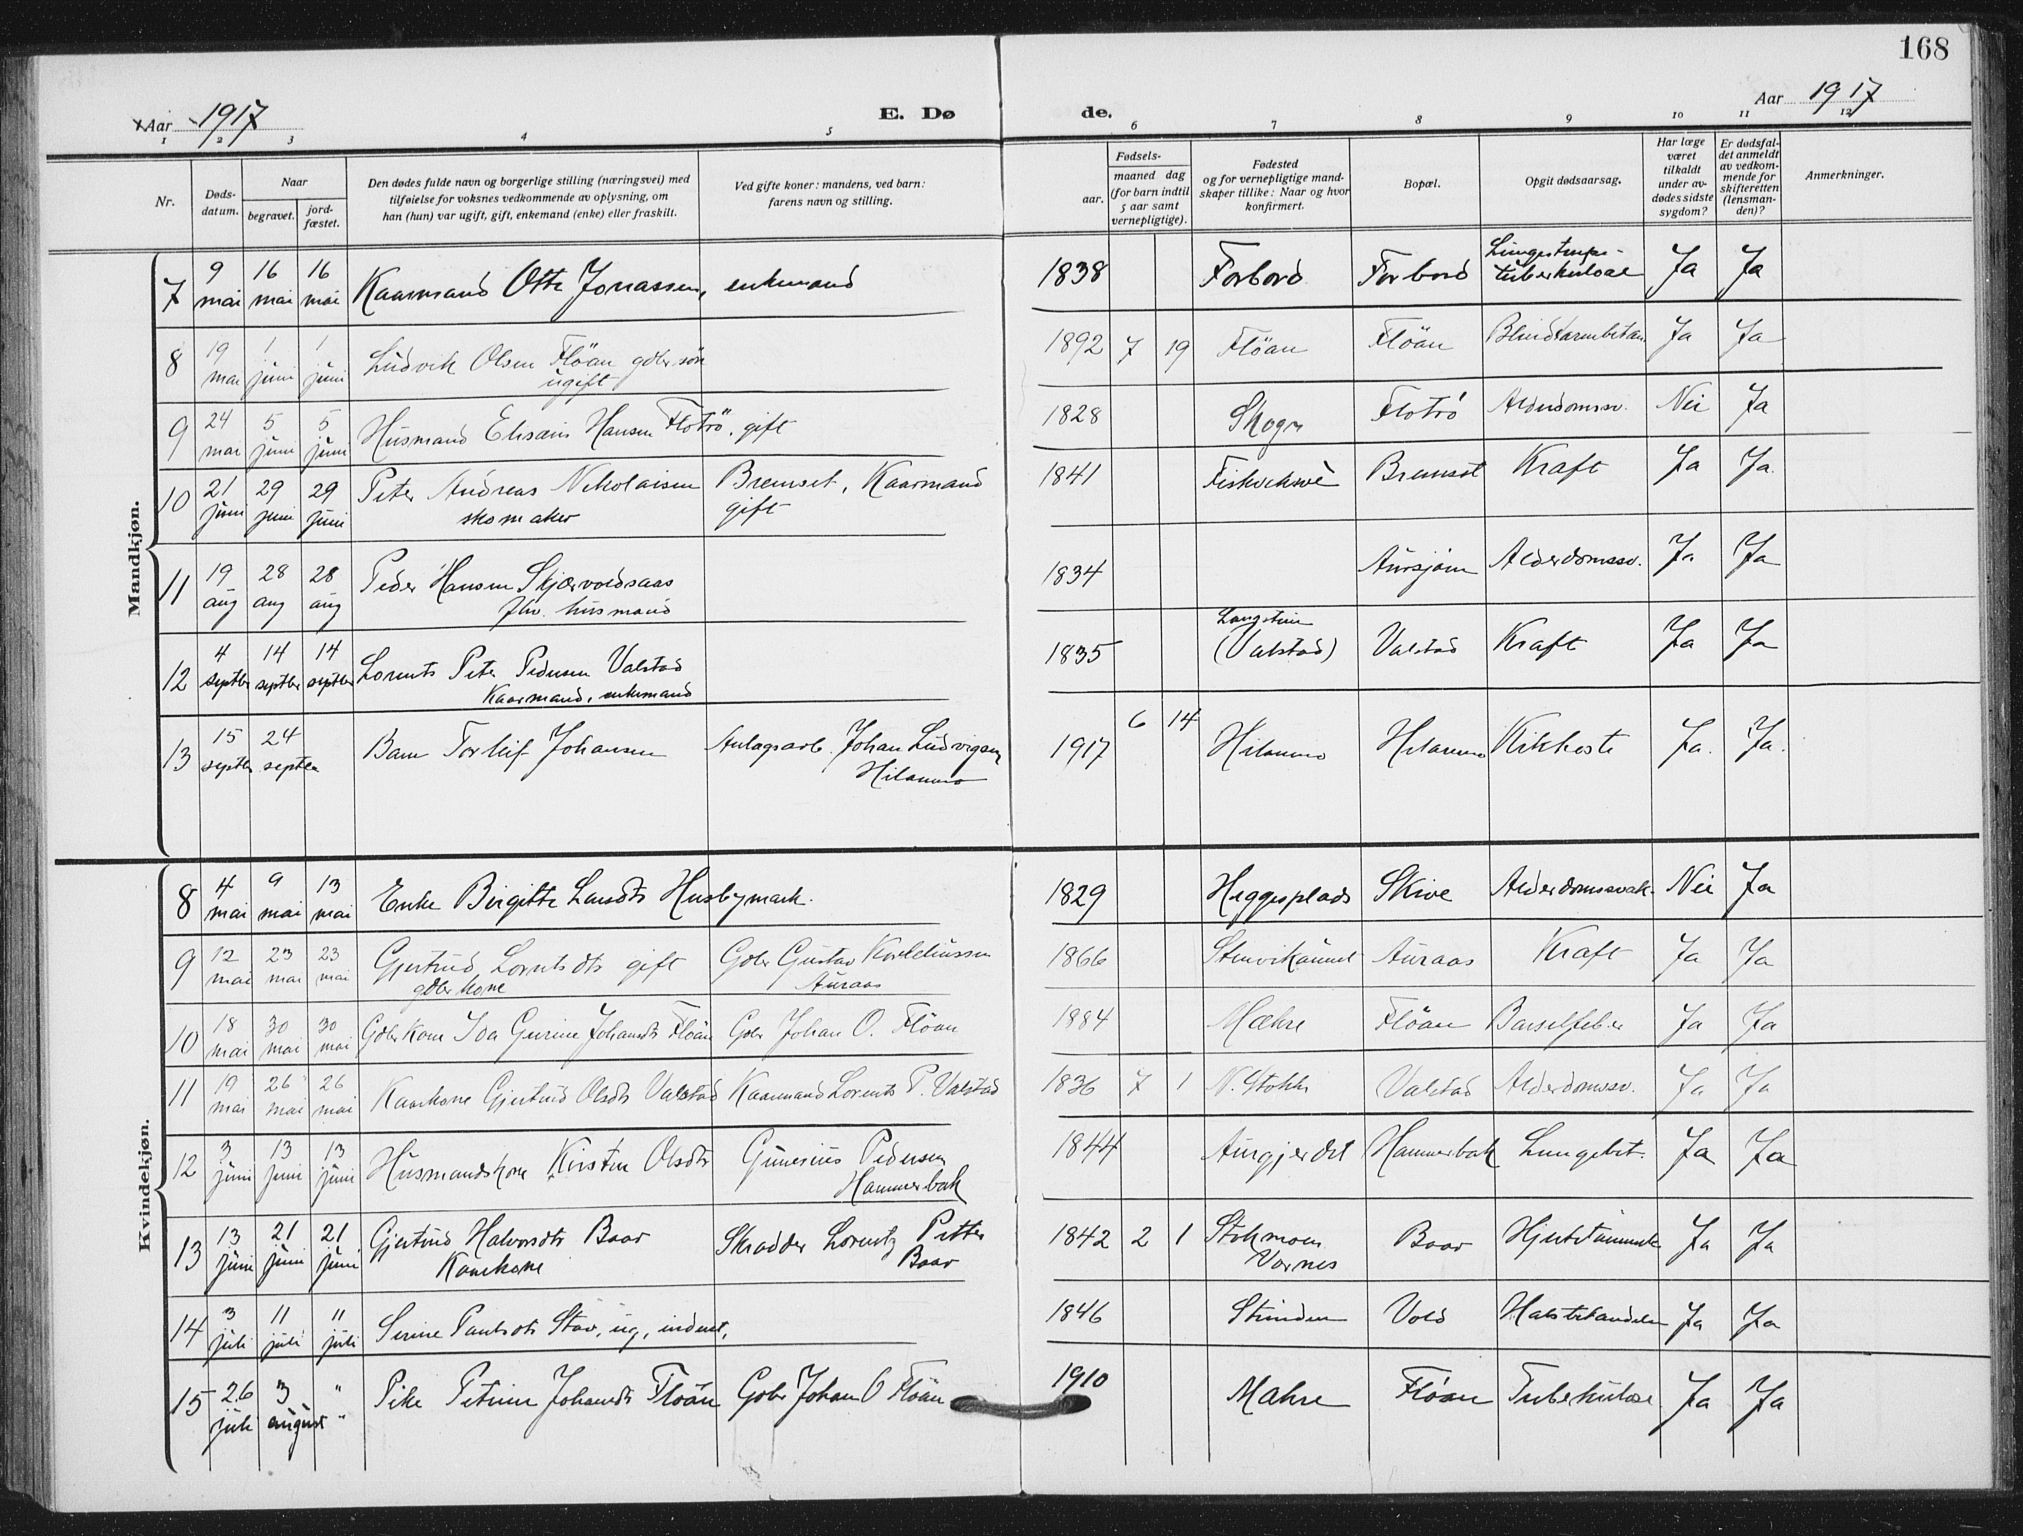 168
Aar 1917 E. Døde. Aar 1917
1 2 3 4 5 6 7 8 9 10 11 12
Nr.
Døds-
datum.
Naar
begravet.
jord-
fæstet.
Den dødes fulde navn og borgerlige stilling (næringsvei) med
tilføielse for voksnes vedkommende av oplysning, om
han (hun) var ugift, gift, enkemand (enke) eller fraskilt.
Ved gifte koner: mandens, ved barn:
farens navn og stilling.
Fødsels-
aar.
maaned dag
(for barn indtil
5 aar samt
vernepligtige).
Fødested
og for vernepligtige mand-
skaper tillike: Naar og hvor
konfirmert.
Bopæl.
Opgit dødsaarsag.
Har læge
været
tilkaldt
under av-
dødes sidste
sygdom?
Er dødsfal-
det anmeldt
av vedkom-
mende for
skifteretten
(lensman-
den)?
Anmerkninger.
Mandkjøn.
7 9 mai 16 mai 16 mai Kaarmand Otte Jonassen, enkemand 1838 Forbord Forbord tuberkulose Ja Ja
8 19 mai 1 juni 1 juni Ludvik Olsen Flöan gdbr søn
ugift
1892 7 19 Flöan Flöan Blindtarmbetæn Ja Ja
9 24 mai 5 juni 5 juni Husmand Hansen Flotrö, gift 1828 Skogn Flotrö Alderdomssv. Nei Ja
10 21 juni 29 juni 29 juni Peter Andreas Nikolaisen Bremset, Kaarmand
skomaker gift
1841 Bremset Kraft Ja Ja.
11 19 aug 28 aug 28 aug Peder Hansen Skjærvoldsaas
fhv. husmand
1834 Aursjøen Alderdomssv. Ja Ja
12 4 septbr 14 septbr 14 septbr Lorents Peter Pedersen Valstad
Kaarmand, enkemand
1835 (Valstad) Valstad Kraft Ja Ja
13 15 septbr 24 septbr Barn Torleif Johansen Anlagsarb. Johan Ludvigsen
Hilammo
1917 6 14 Hilammo Hilammo Kikhoste Ja. Ja.
Kvindekjøn.
8 4 mai 9 mai 13 mai Enke Birgitte Larsdtr Husbymark. 1829 Heggesplads Skive Alderdomssvak. Nei Ja
9 12 mai 23 mai 23 mai Gjertrud Lorntsdtr gift Gdbr Gustav Korneliussen
gdbr kone Auraas
1866 Auraas Kraft Ja Ja
10 18 mai 30 mai 30 mai Gdbr kone Ida Gurine Johansdtr Flöan Gdbr Johan O. Flöan 1884 Mæhre Flöan Barselfeber Ja Ja
11 19 mai 26 mai 26 mai Kaarkone Gjertrud Olsdtr Valstad Kaarmand Lorents P. Valstad 1836 7 1 N. Stokke Valstad Alderdomssv. Ja Ja
12 3 juni 13 juni 13 juni Husmandskone Kirsten Olsdtr Gunerius Pedersen
Hammerbak
1844 Aungjerdet Hammerbak Lungebet. Ja Ja
13 13 juni 21 juni 21 juni Gjertrud Halvorsdtr Baar Skrædder Lorentz Petter
Kaarkone Baar
1842 2 1 Stokmoen
Værnes
Baar Ja Ja
14 3 juli 11 juli 11 juli Serine Paulsdtr Stav, ug, inderst, 1846 Vold Ja Ja
15 26 juli 3 august " " Pike Petrine Johansdtr Flöan Gdbr Johan O Flöan 1910 Mæhre Flöan Tuberkulose Ja Ja